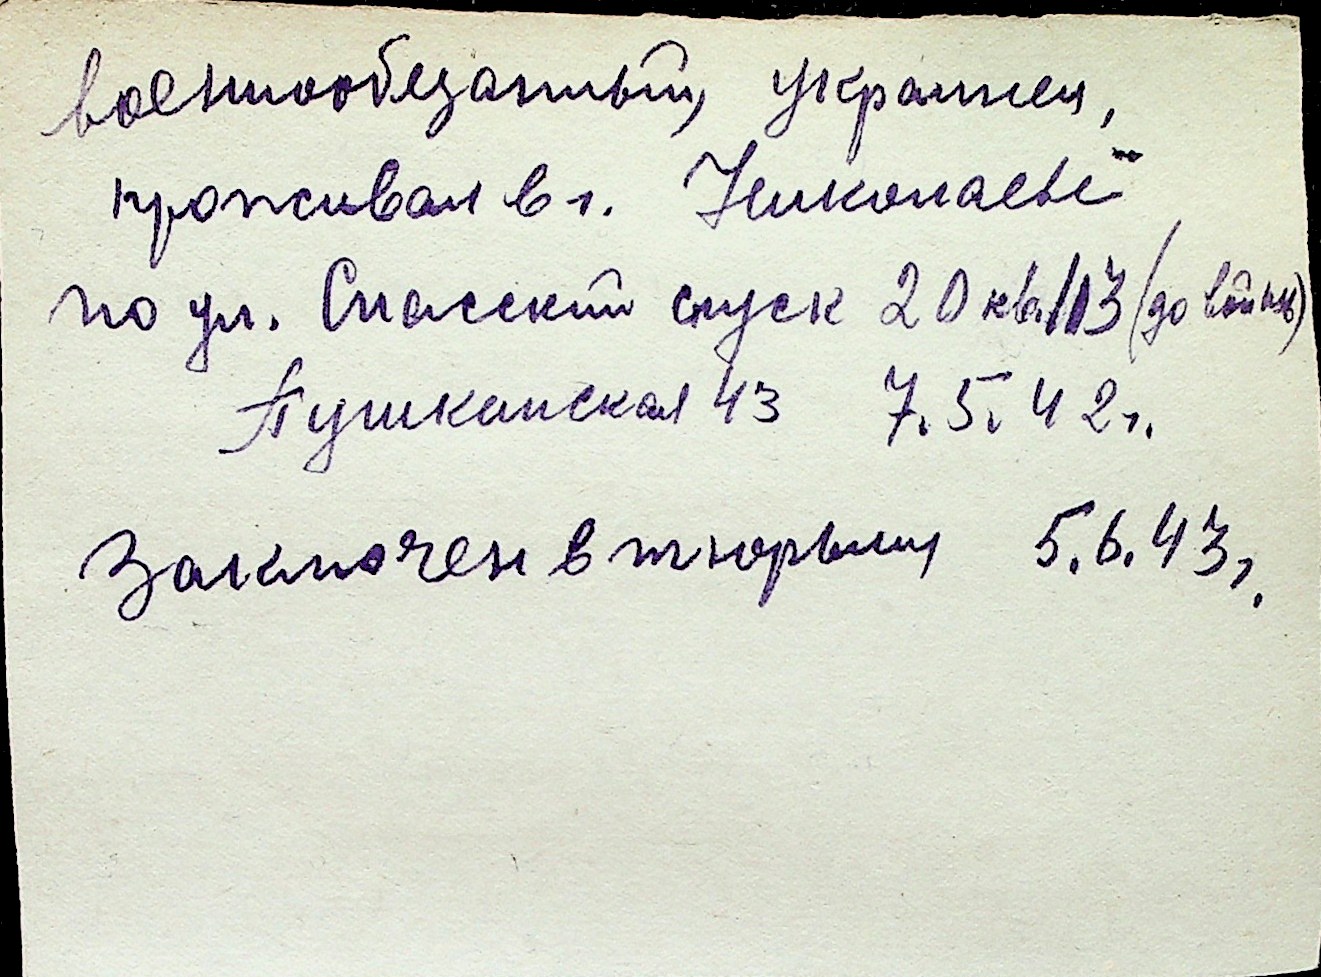 военнообязанный, украинец,
проживал в г. Николаеве
по ул. Спасский спуск 20 кв. 13 (до войны)
Пушкинская 43 7.5.42 г.
Заключен в тюрьму 5.6.43 г.